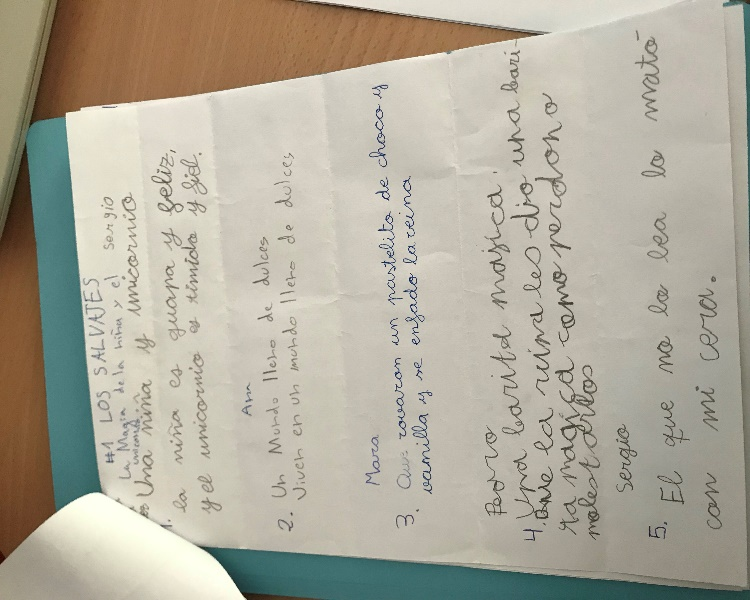 #1 LOS SALVAJES
La Magia de la niña y el Sergio
unicornio
Una niña y unicornio
1. la niña es guapa y feliz,
y el unicornio es timido y fiel.
Ana
2. Un Mundo lleno de dulces
Viven en un mundo lleno de dulces
Mara
3. Que rovaron un pastelito de choco y
vamilla y se enfado la reina
Pedro
4. Una barita magica.
Que la reina les dio una bari-
ta magica como perdono
molestarlos
Sergio
5. El que no lo lea lo mato
con mi cera.